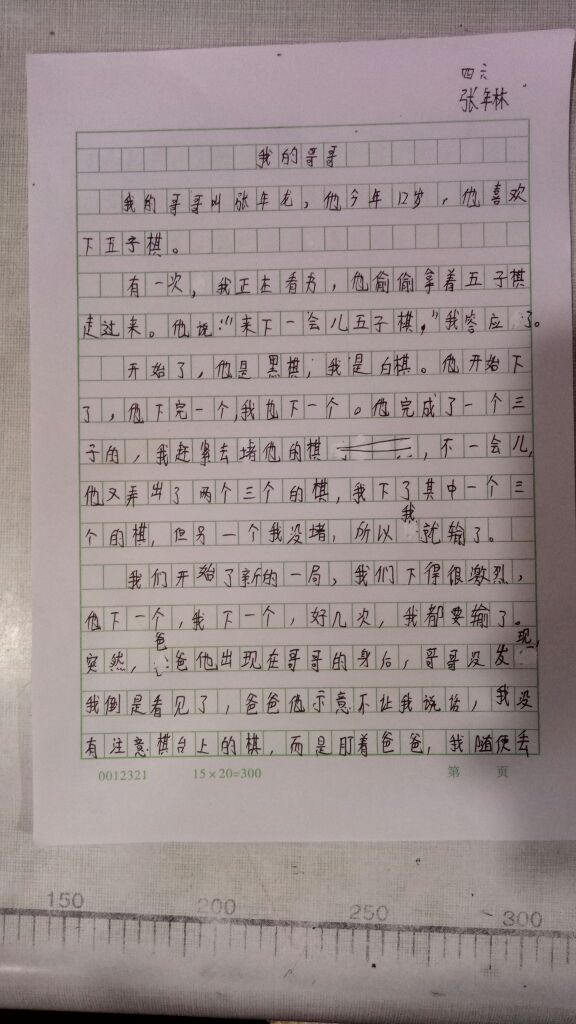 四六
张年林
我的哥哥
我的哥哥叫张年龙，他今年12岁，他喜欢
下五子棋。
有一次，我正在看书，他偷偷拿着五子棋
走过来。他说：“来下一会儿五子棋，”我答应了。
开始了，他是黑棋，我是白棋。他开始下
了，他下完一个，我也下一个。他完成了一个三
子的，我赶紧去堵他的棋，不一会儿，
他又弄出了两个三个的棋，我下了其中一个三
个的棋，但另一个我没堵，所以我就输了。
我们开始了新的一局，我们下得很激烈，
他下一个，我下一个，好几次，我都要输了。
突然，爸爸他出现在哥哥的身后，哥哥没发现，
我倒是看见了，爸爸他示意不让我说话，我没
有注意棋台上的棋，而是盯着爸爸，我随便丢
0012321 15×20=300 第 页
150 200 250 300